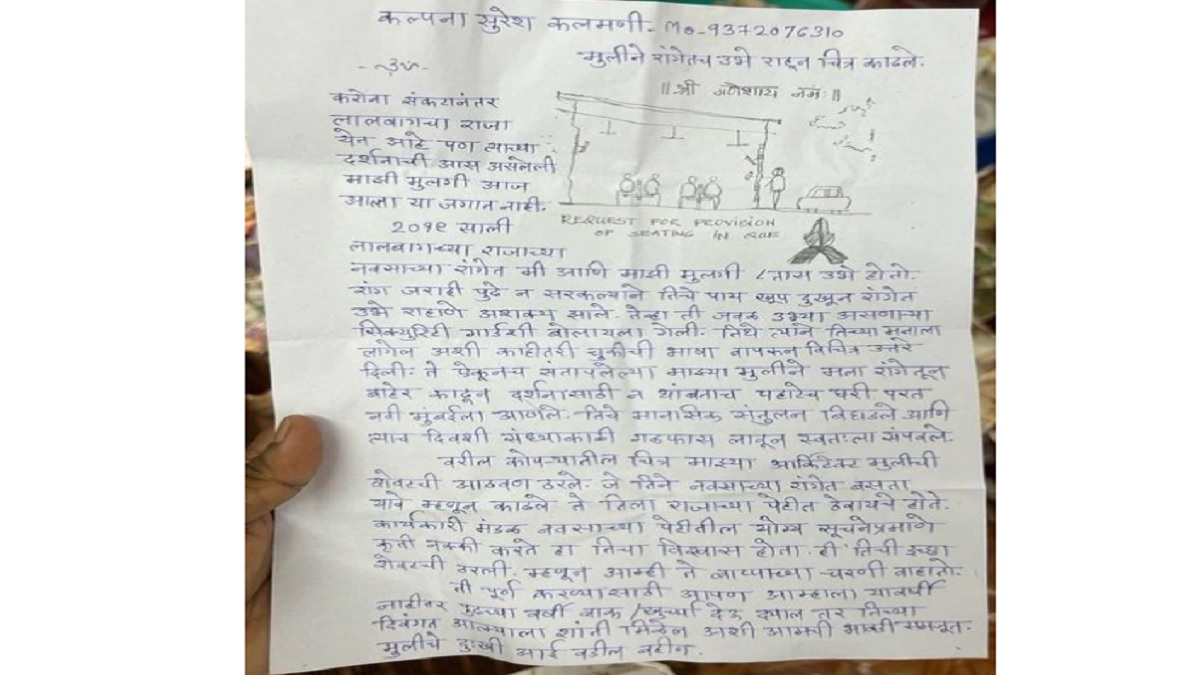 कल्पना सुरेश कलमणी - Mo-9372076310
मुलीने रांगेतच उभे राहून चित्र काढले.
-ॐ-
॥ श्री गणेशाय नमः ॥
करोना संकटानंतर
लालबागचा राजा
येत आहे पण त्याच्या
दर्शनाची आस असलेली
माझी मुलगी आज
आत्ता या जगात नाही.
REQUEST FOR PROVISION
OF SEATING IN QUE
२०१९ साली
लालबागच्या राजाच्या
नवसाच्या रांगेत मी आणि माझी मुलगी ८ तास उभे होतो.
रांग जराही पुढे न सरकल्याने तिचे पाय खूप दुखून रांगेत
उभे राहाणे अशक्य झाले. तेव्हा ती जवळ उभ्या असणाऱ्या
सिक्युरिटी गार्डशी बोलायला गेली. तिथे त्याने तिच्या मनाला
लागेल अशी काहीतरी चुकीची भाषा वापरून विचित्र उत्तरे
दिली. ते ऐकूनच संतापलेल्या माझ्या मुलीने मला रांगेतून
बाहेर काढून दर्शनासाठी न थांबताच पहाटेच घरी परत
नवी मुंबईला आणले. तिचे मानसिक संतुलन बिघडले आणि
त्याच दिवशी संध्याकाळी गळफास लावून स्वतःला संपवले.
वरील कोपऱ्यातील चित्र माझ्या आर्किटेक्ट मुलीची
शेवटची आठवण ठरले. जे तिने नवसाच्या रांगेत बसता
यावे म्हणून काढले ते तिला राजाच्या पेटीत ठेवायचे होते.
कार्यकारी मंडळ नवसाच्या पेटीतील योग्य सूचनेप्रमाणे
कृती नक्की करते हा तिचा विश्वास होता. ही तिची इच्छा
शेवटची ठरली. म्हणून आम्ही ते बाप्पाच्या चरणी वाहातो.
ती पूर्ण करण्यासाठी आपण आम्हाला यावर्षी
नाहीतर पुढच्या वर्षी बाक/खुर्च्या देऊ द्याल तर तिच्या
दिवंगत आत्म्याला शांती मिळेल अशी आमची भाबडी समजूत.
मुलीचे दुःखी आई वडील बहीण.